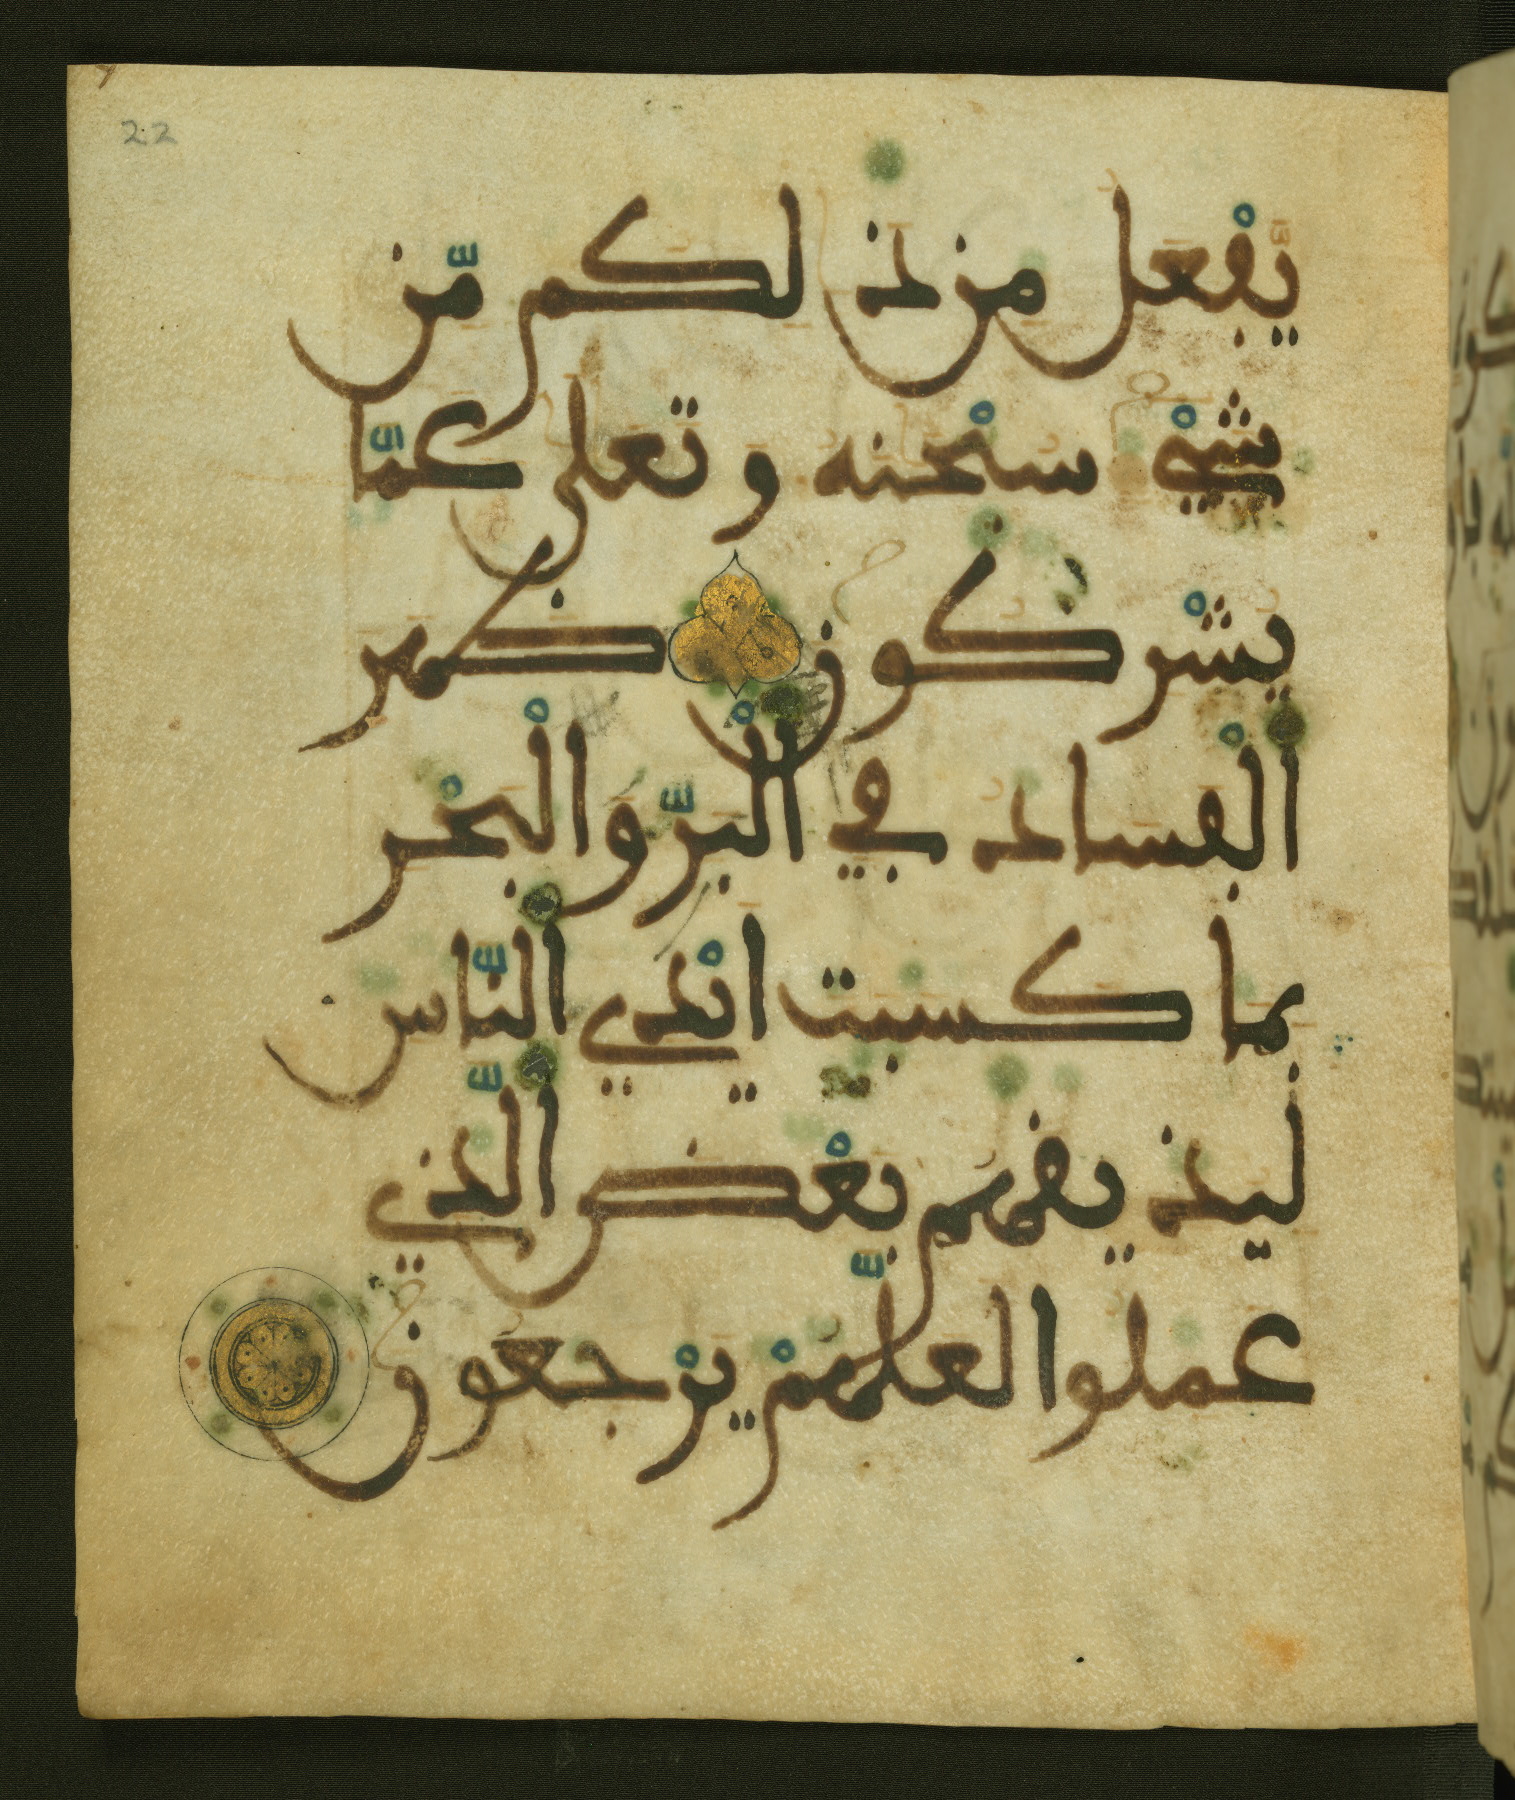 22
يفعل من ذلكم من
شيء سبحنه وتعلى عما
يشركون ظهر
الفساد في البر والبحر
بما كسبت أيدي الناس
ليذيقهم بعض الذي
عملوا لعلهم يرجعون